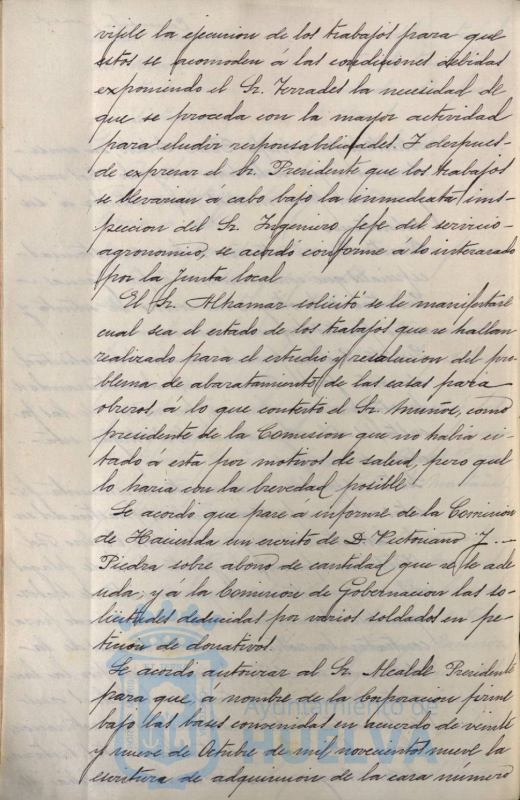 vigile la ejecucion de los trabajos para que
estos se acomoden á las condiciones debidas
exponiendo el Sr. Terrades la necesidad de
que se proceda con la mayor actividad
para eludir responsabilidades. Y despues
de expresar el Sr. Presidente que los trabajos
se llevarian á cabo bajo la inmediata ins-
peccion del Sr. Ingeniero Jefe del servicio
agronomico, se acordó conforme á lo interesado
por la Junta local
El Sr. Alhamar solicitó se le manifestase
cual sea el estado de los trabajos que se hallan
realizado para el estudio y resolucion del pro-
blema de abaratamiento de las casas para
obreros, á lo que contestó el Sr. Muñoz, como
presidente de la Comision que no habia ci-
tado á esta por motivos de salud, pero que
lo haria con la brevedad posible
Se acordó que pase a informe de la Comision
de Hacienda un escrito de D. Victoriano J. -
Piedra sobre abono de cantidad que se le ade-
uda; y á la Comision de Gobernacion las so-
licitudes deducidas por varios soldados en pe-
ticion de donativos.
Se acordó autorizar al Sr. Alcalde Presidente
para que, á nombre de la Corporacion firme
bajo las bases convenidas en acuerdo de veinte
y nueve de Octubre de mil novecientos nueve la
escritura de adquisicion de la casa número
Ayuntamiento de
HUELVA